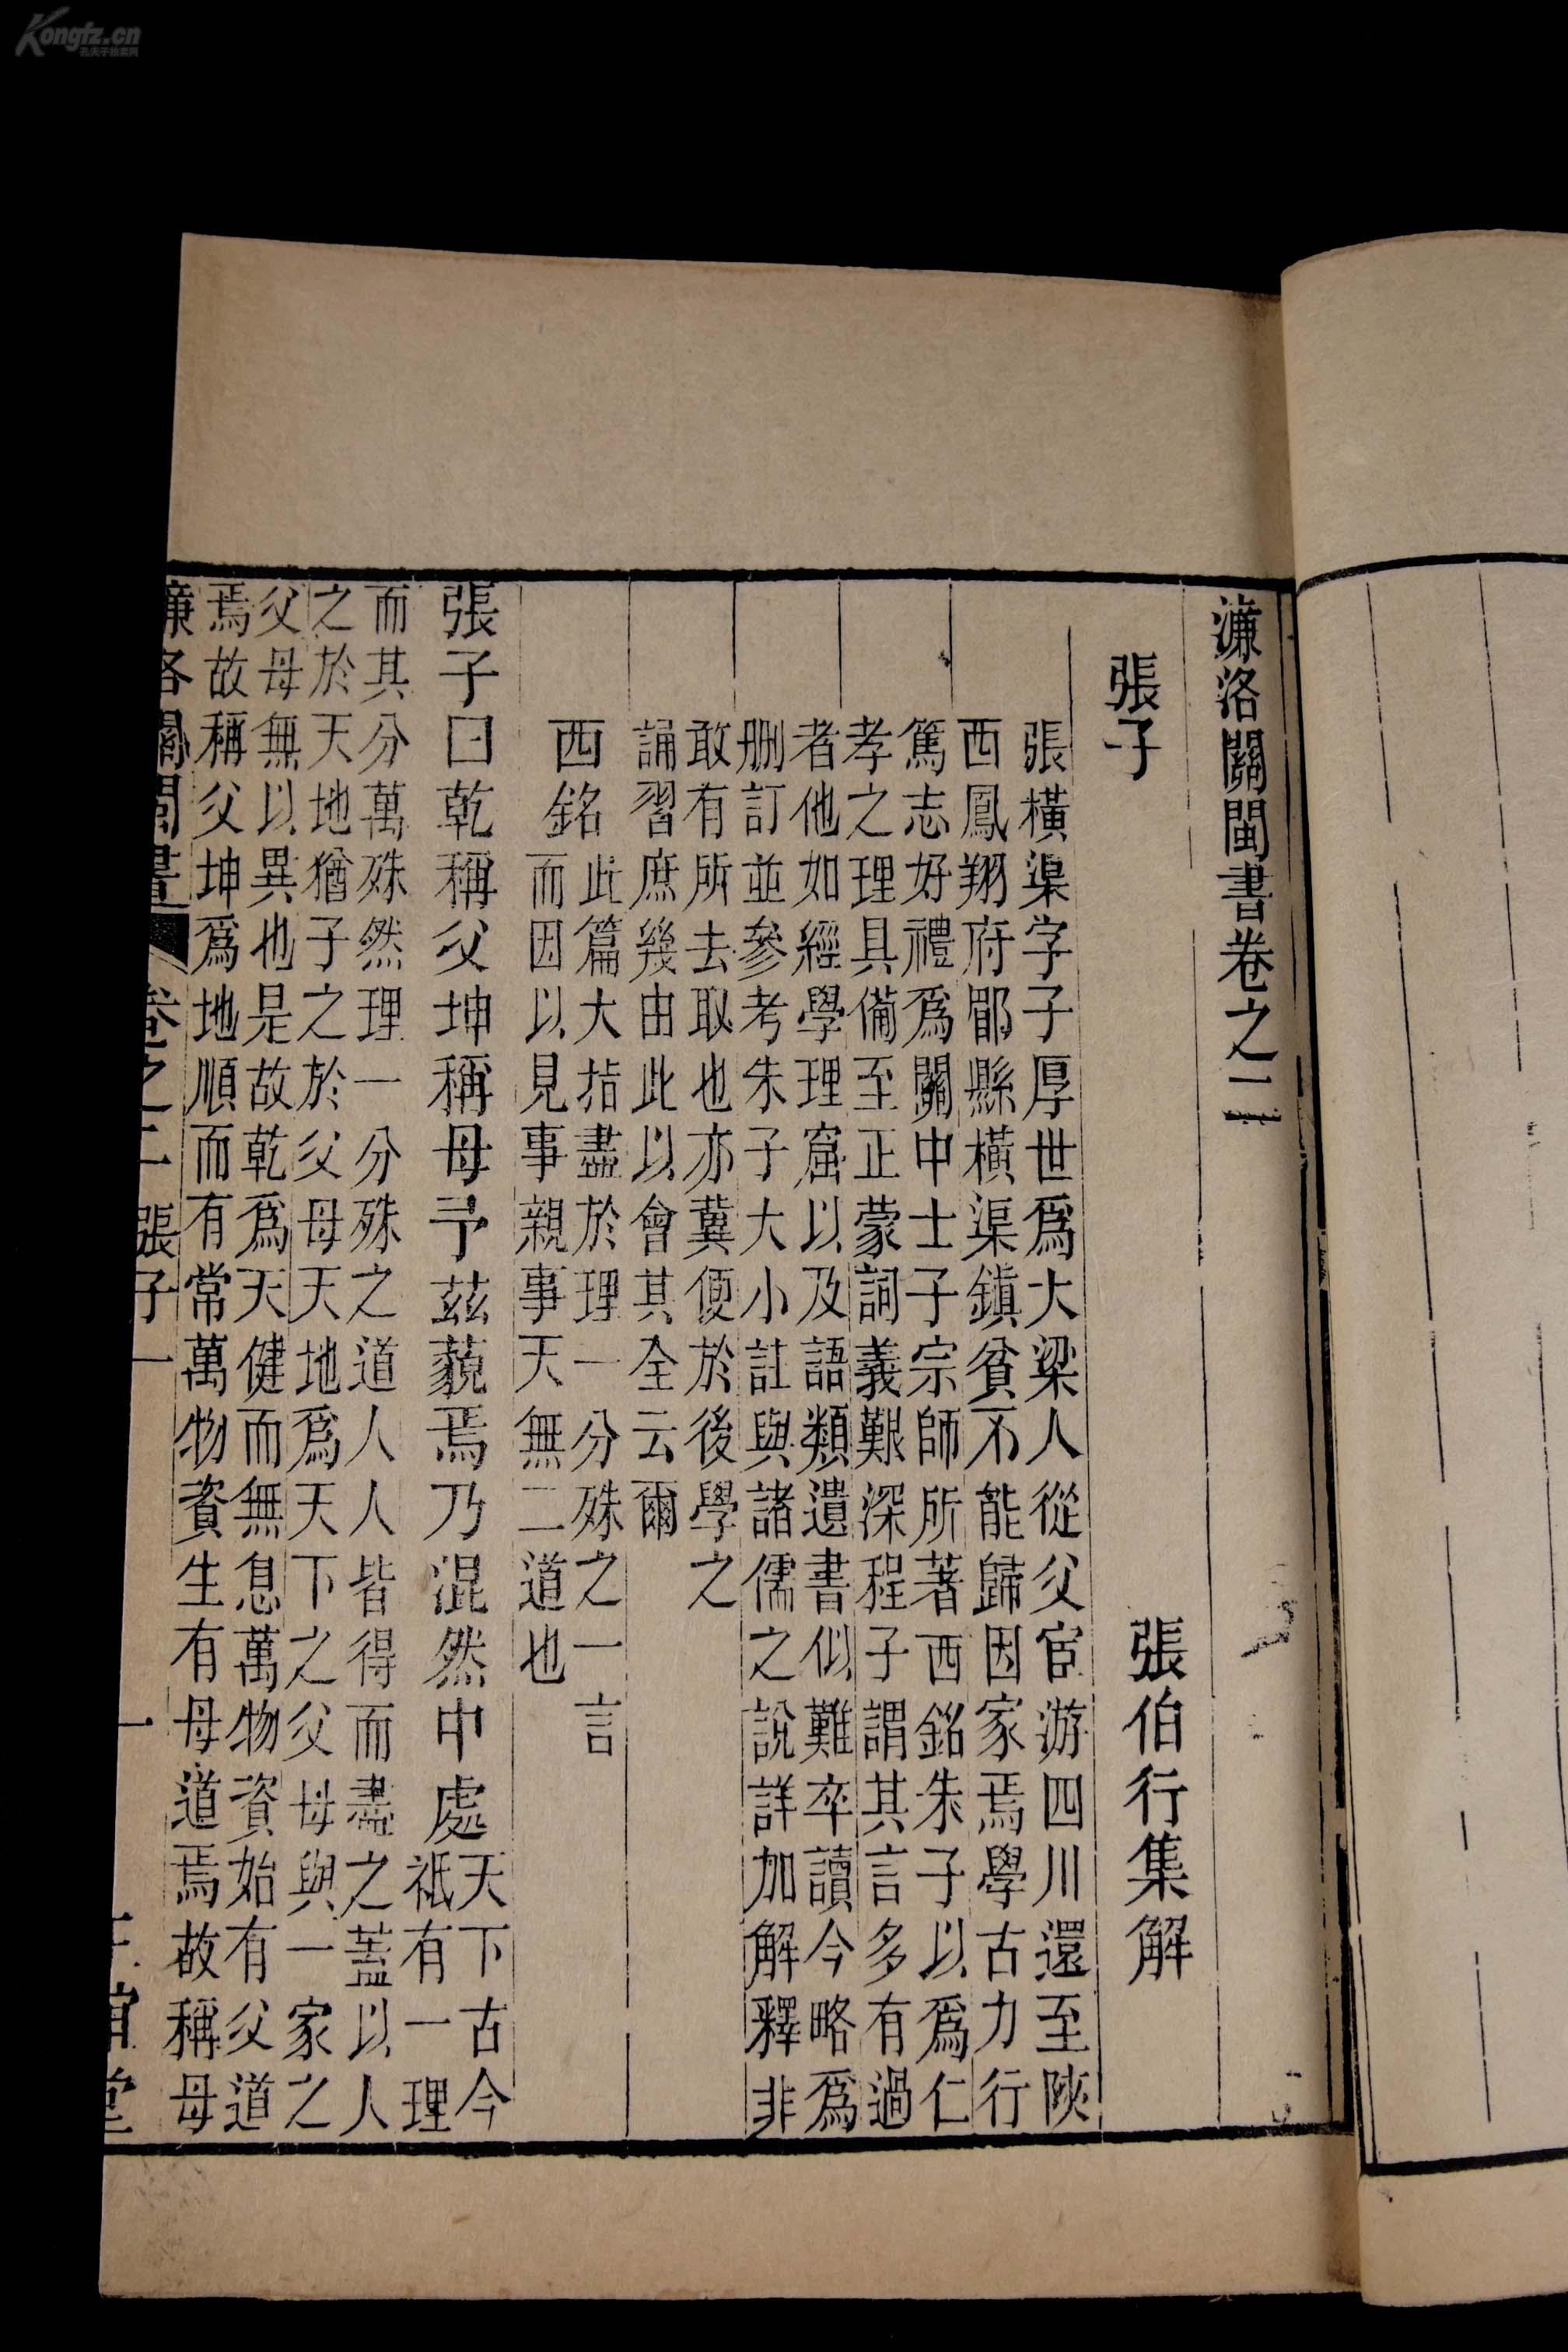 Kongfz.cn
濂洛關閩書卷之二
張子
張伯行集解
張橫渠字子厚世爲大梁人從父宦游四川還至陜
西鳳翔府郿縣橫渠鎮貧不能歸因家焉學古力行
篤志好禮爲關中士子宗師所著西銘朱子以爲仁
孝之理具備至正蒙詞義艱深程子謂其言多有過
者他如經學理窟以及語類遺書似難卒讀今略爲
刪訂並參考朱子大小註與諸儒之說詳加解釋非
敢有所去取也亦冀便於後學之
誦習庶幾由此以會其全云爾
西銘
此篇大指盡於理一分殊之一言
而因以見事親事天無二道也
張子曰乾稱父坤稱母予茲藐焉乃混然中處
天下古今
祇有一理
而其分萬殊然理一分殊之道人人皆得而盡之蓋以人
之於天地猶子之於父母天地爲天下之父母與一家之
父母無以異也是故乾爲天健而無息萬物資始有父道
焉故稱父坤爲地順而有常萬物資生有母道焉故稱母
卷之二 張子 一